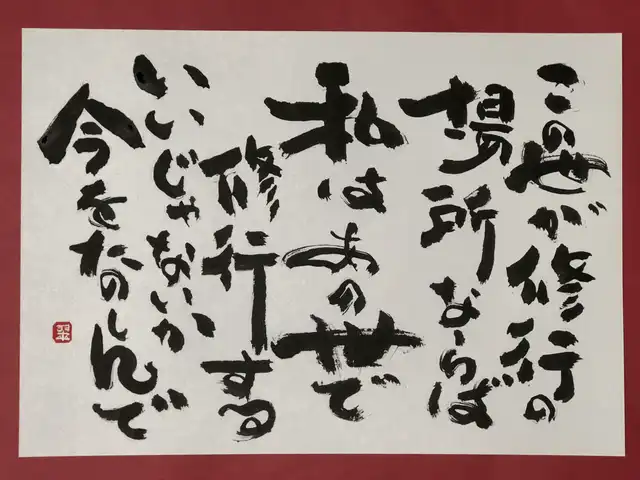 この世が修行の
場所ならば
私はあの世で
修行する
いいじゃないか
今をたのしんで